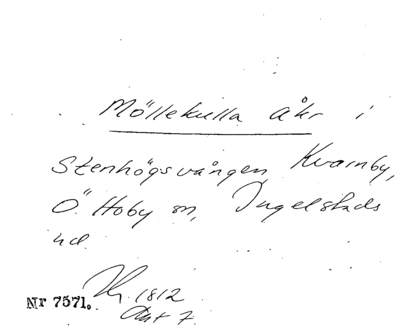 Möllekulla åkr i
Stenhögsvången Kvarnby,
Ö Hoby sn, Ingelstads
hd.
1812
Akt 7.
Nr 7571.